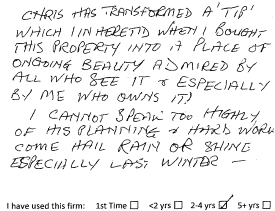 CHRIS HAS TRANSFORMED A 'TIP'
WHICH I INHERETID WHEN I BOUGHT
THIS PROPERTY INTO A PLACE OF
ONGOING BEAUTY ADMIRED BY
ALL WHO SEE IT & ESPECIALLY
BY ME WHO OWNS IT!
I CANNOT SPEAK TOO HIGHLY
OF HIS PLANNING & HARD WORK
COME HAIL RAIN OR SHINE
ESPECIALLY LAST WINTER –
I have used this firm: 1st Time ☐ <2 yrs ☐ 2-4 yrs ☑ 5+ yrs ☐